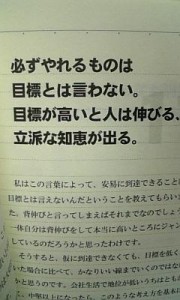 必ずやれるものは
目標とは言わない。
目標が高いと人は伸びる、
立派な知恵が出る。
私はこの言葉によって、安易に到達できること
目標とは言えないんだということを教えてもらい
た。背伸びと言ってしまえばそれまでなのでしょう
一体自分は背伸びをして本当に高いところにジャン
しているのだろうかと思ったわけです。
そうすると、仮に到達できなくても、目標を低く
いた場合に比べて、かなりいい線までいくのではな
かと思うのです。会社生活で地位が低いうちはともか
、中堅以上になったら、このような考え方を基本